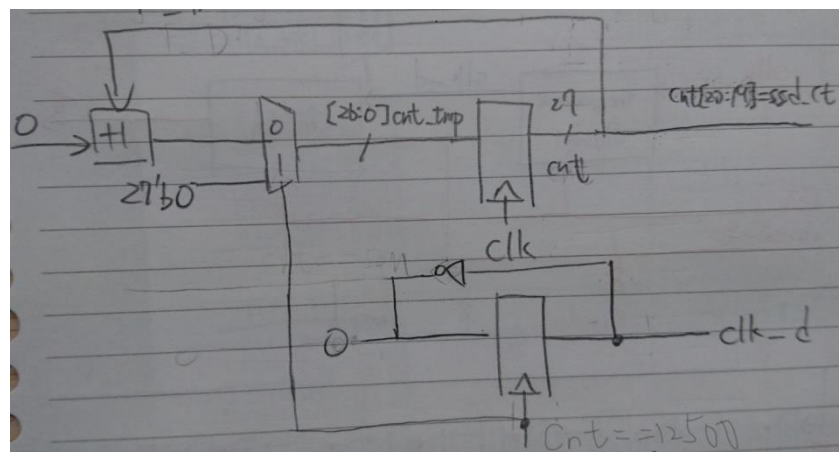 0
+1
27'b0
0
1
[26:0]cnt_tmp
27
cnt
cnt[20:19]=ssd_ct
clk
0
clk_d
Cnt==12500